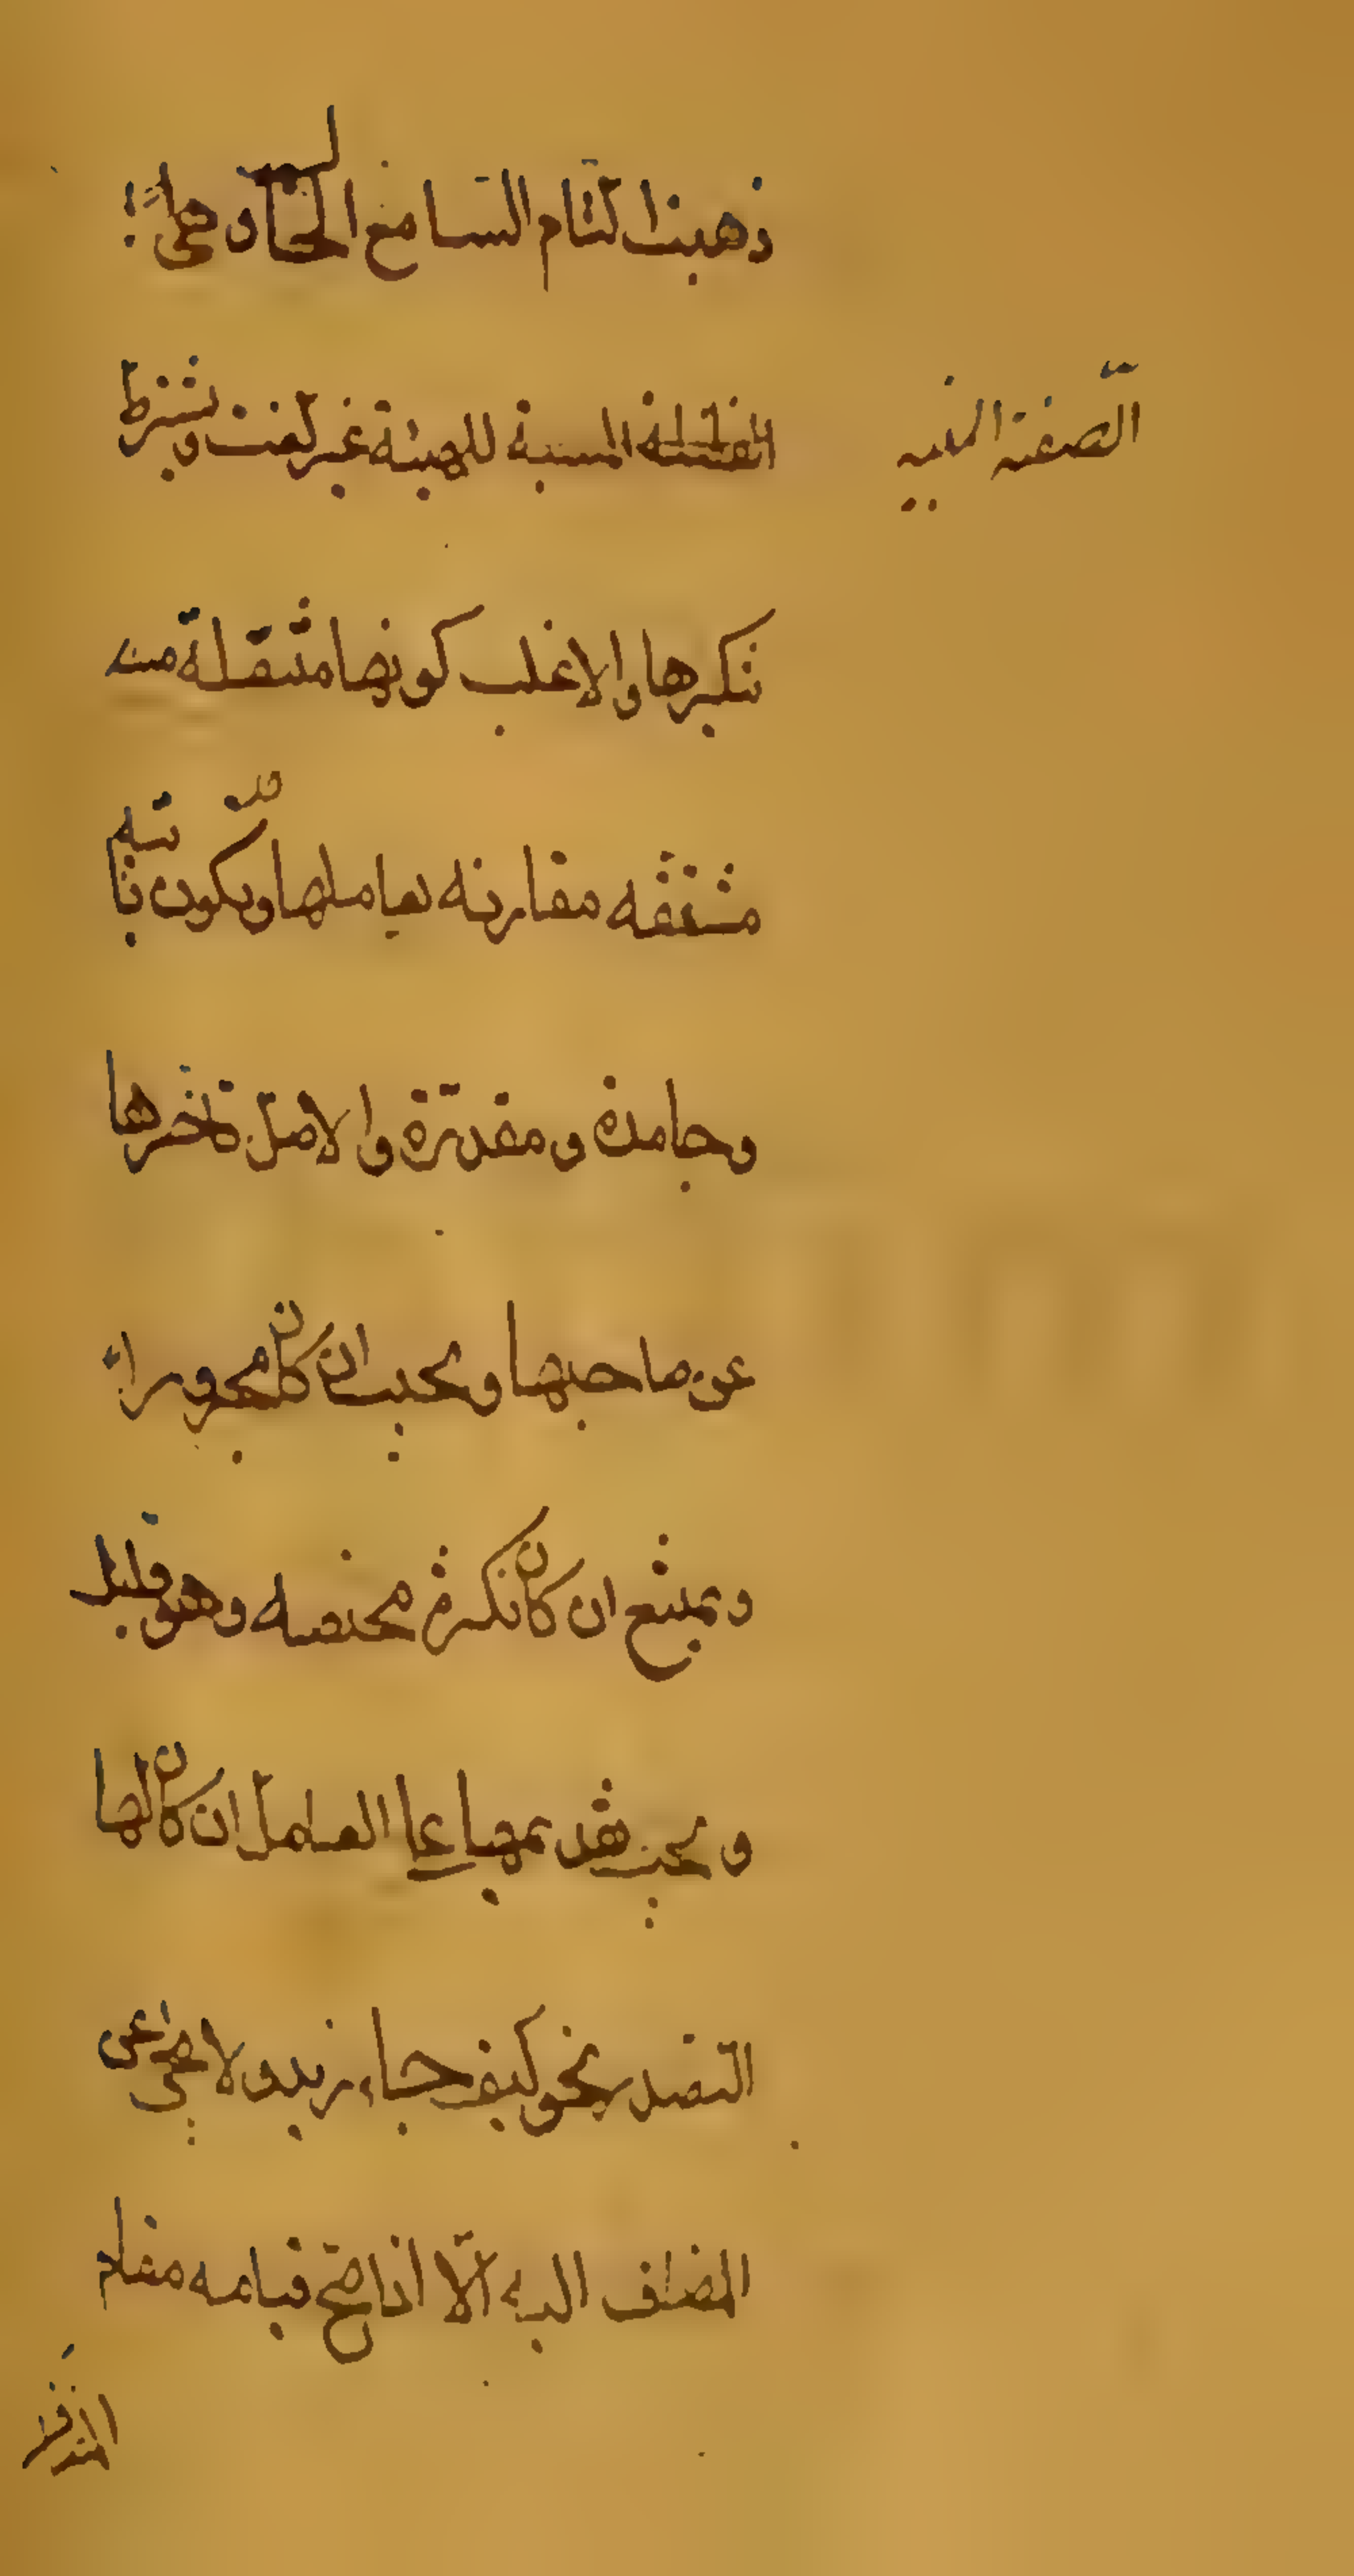 ذهبنا لتمام السامع الحال وهى
الفضلة المبينة للهيئة غير نعت ويشترط
الصفة المبينة
تنكيرها والاغلب كونها منتقلة
مشتقه مقارنه لعاملها وقد يكون ثابته
وجامدة ومقدرة والاصل تاخرها
عن صاحبها ويجب ان كان مجرورا
ويمتنع ان كان نكرة محضه وهو قليل
ويجب تقديمها على العامل ان كان لها
التصدر نحو كيف جاء زيد ولا تجئ عن
المضاف اليه الّا اذا صح قيامه مقام
المضاف